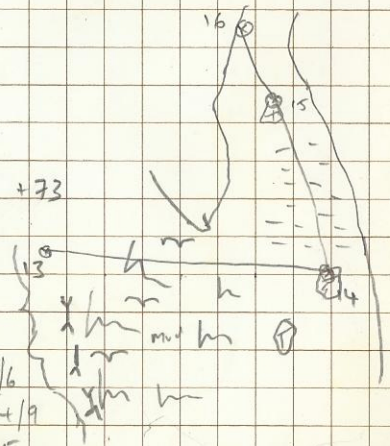 16
15
+73
13
14
mud
T
/6
+/9